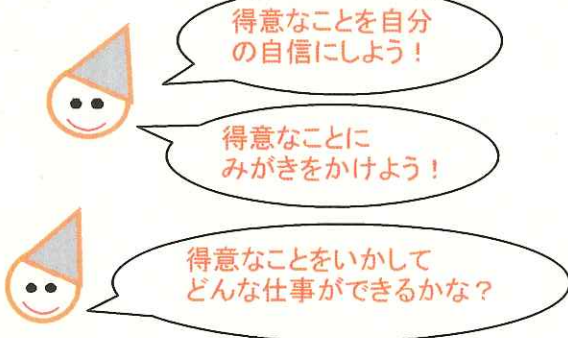 得意なことを自分
の自信にしよう！
得意なことに
みがきをかけよう！
得意なことをいかして
どんな仕事ができるかな？